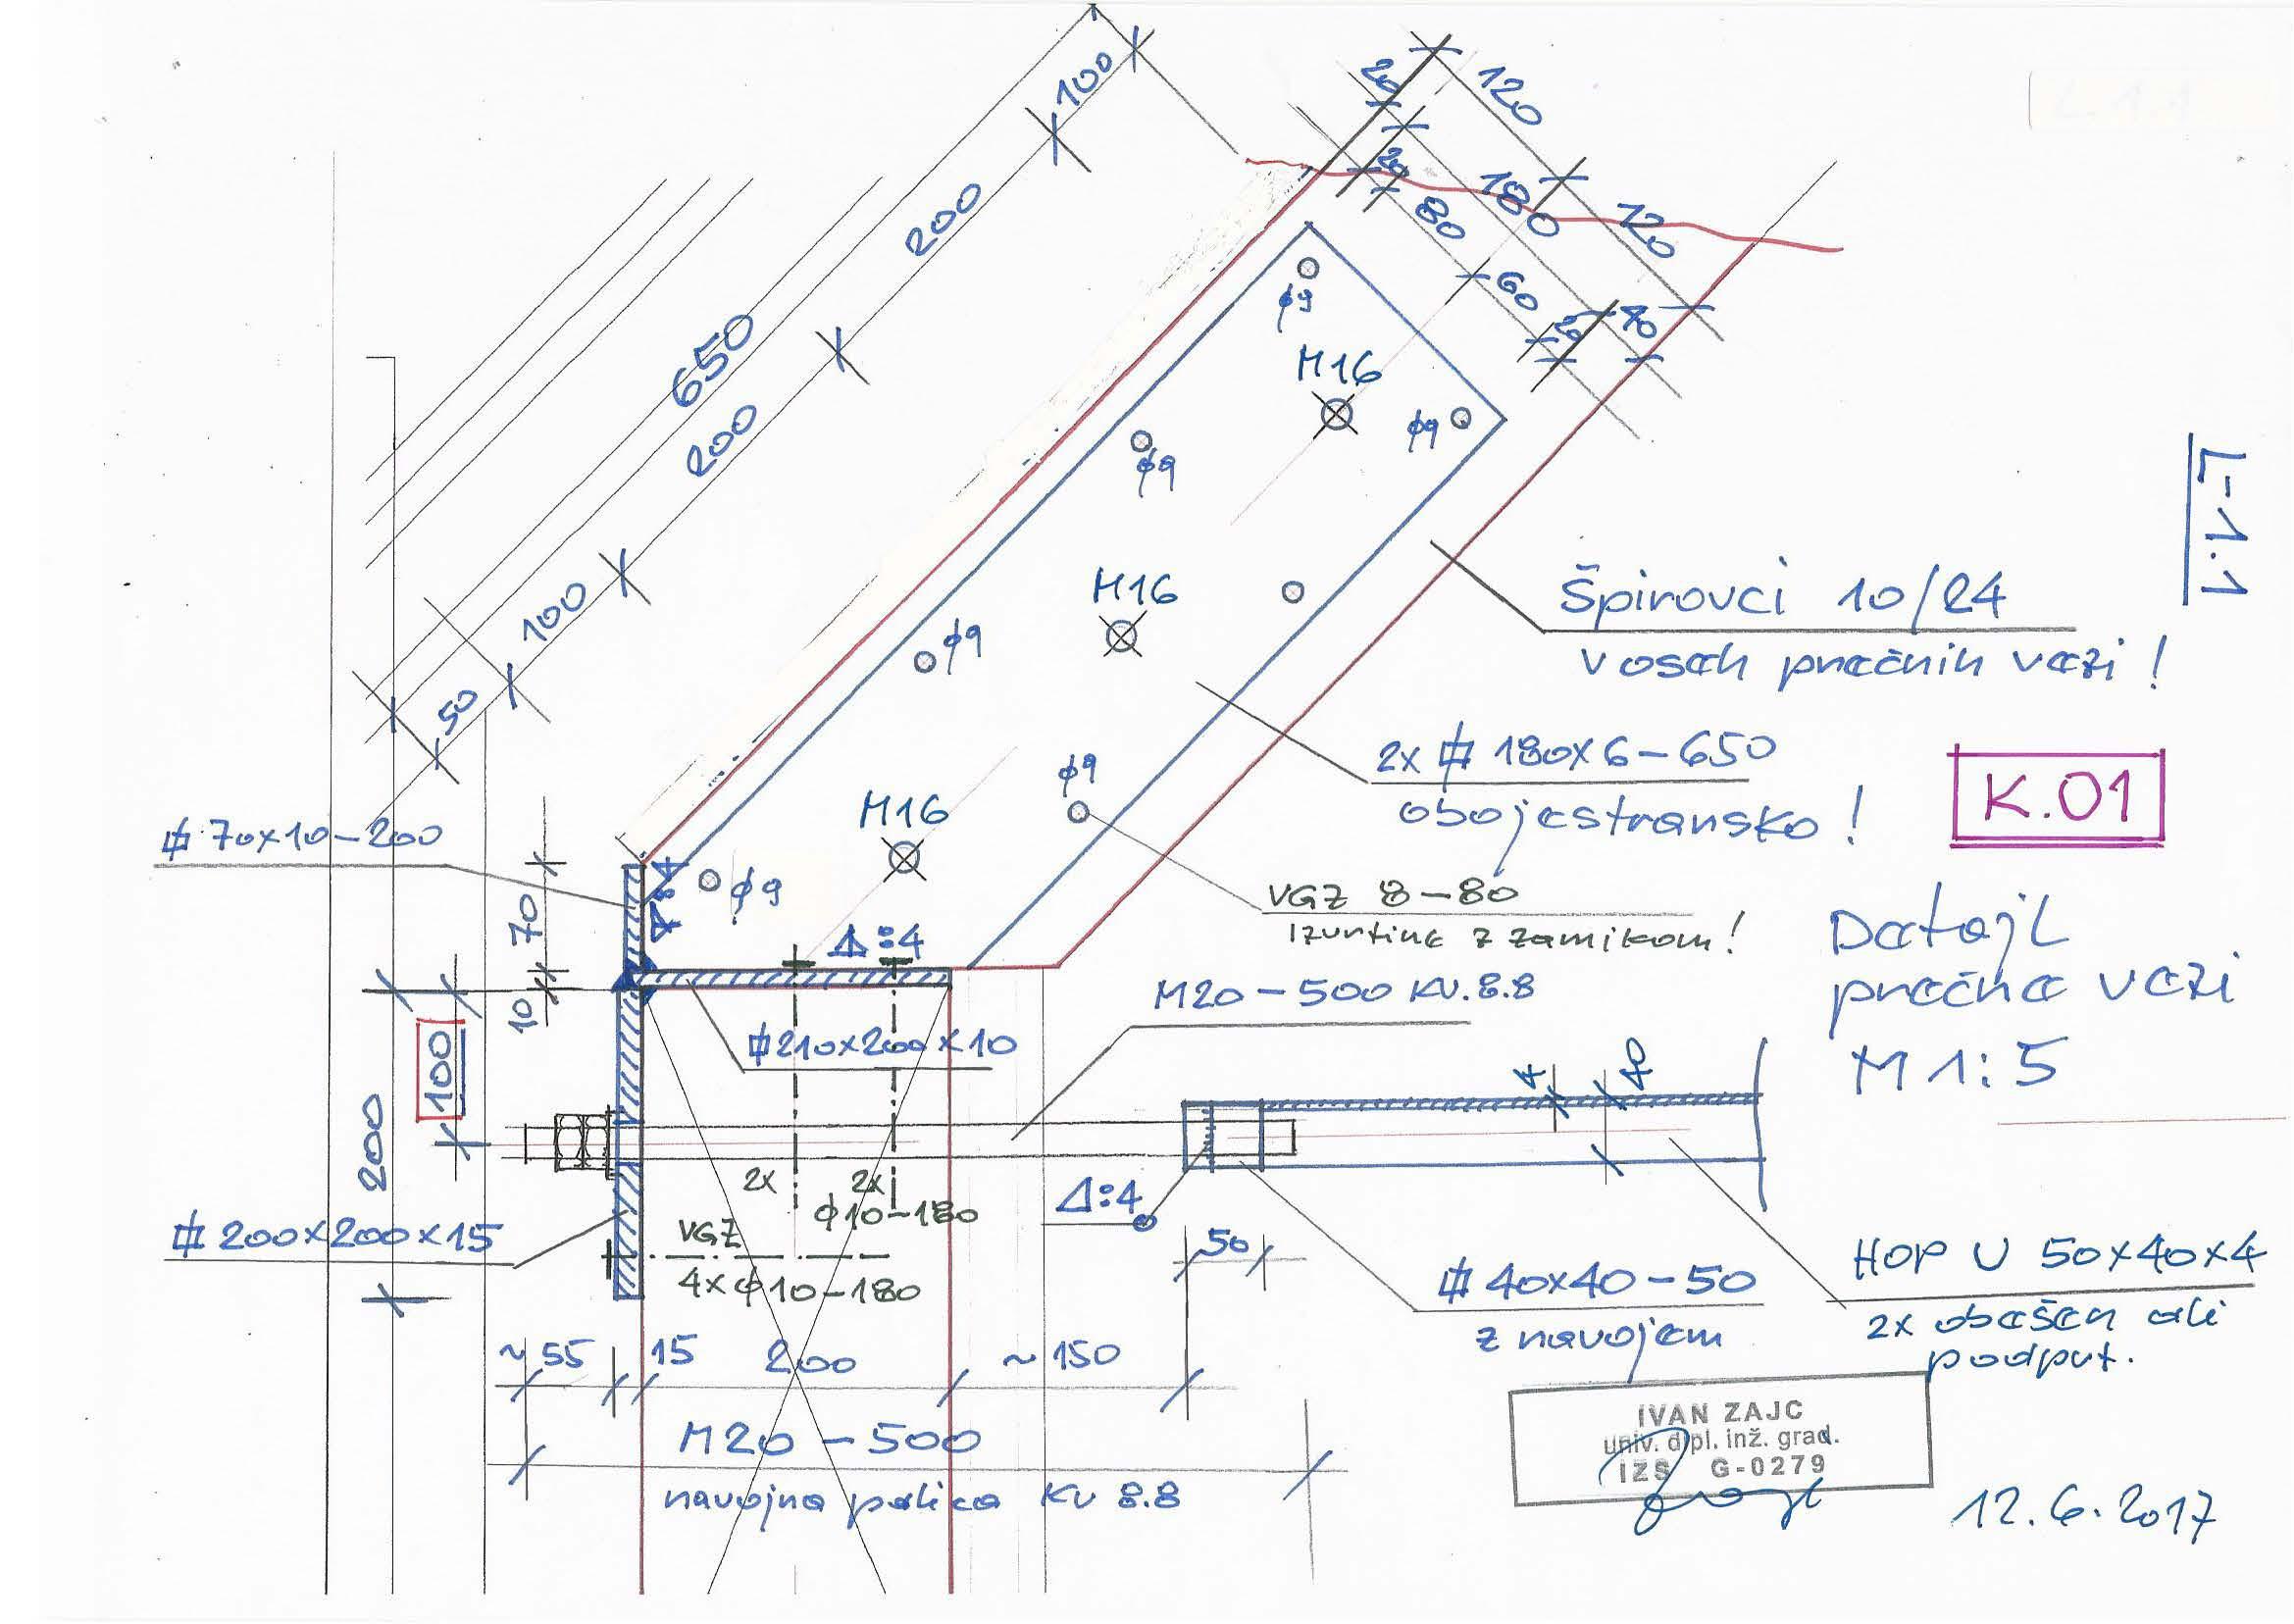 100
200
650
200
100
50
20
120
20
180
120
80
60
20
40
φ9
M16
φ9
φ9
M16
φ9
M16
φ9
φ9
L-1.1
Špirovci 10/24
v oseh prečnih vezi!
2x ⌗ 180x6-650
obojestransko!
K.01
VGZ 8-80
Izvrtine z zamikom!
Detajl
prečne vezi
M 1:5
⌗ 70x10-200
70
10
100
200
4
Δ:4
⌗ 210x200x10
M20-500 kv. 8.8
4
40
2x
2x
φ10-180
VGZ
4x φ10-180
⌗ 200x200x15
Δ:4
50
⌗ 40x40-50
z navojem
HOP U 50x40x4
2x obešen ali
podprt.
~55
15
200
~150
M20-500
navojna palica kv 8.8
IVAN ZAJC
univ. dipl. inž. grad.
IZS G-0279
12.6.2017